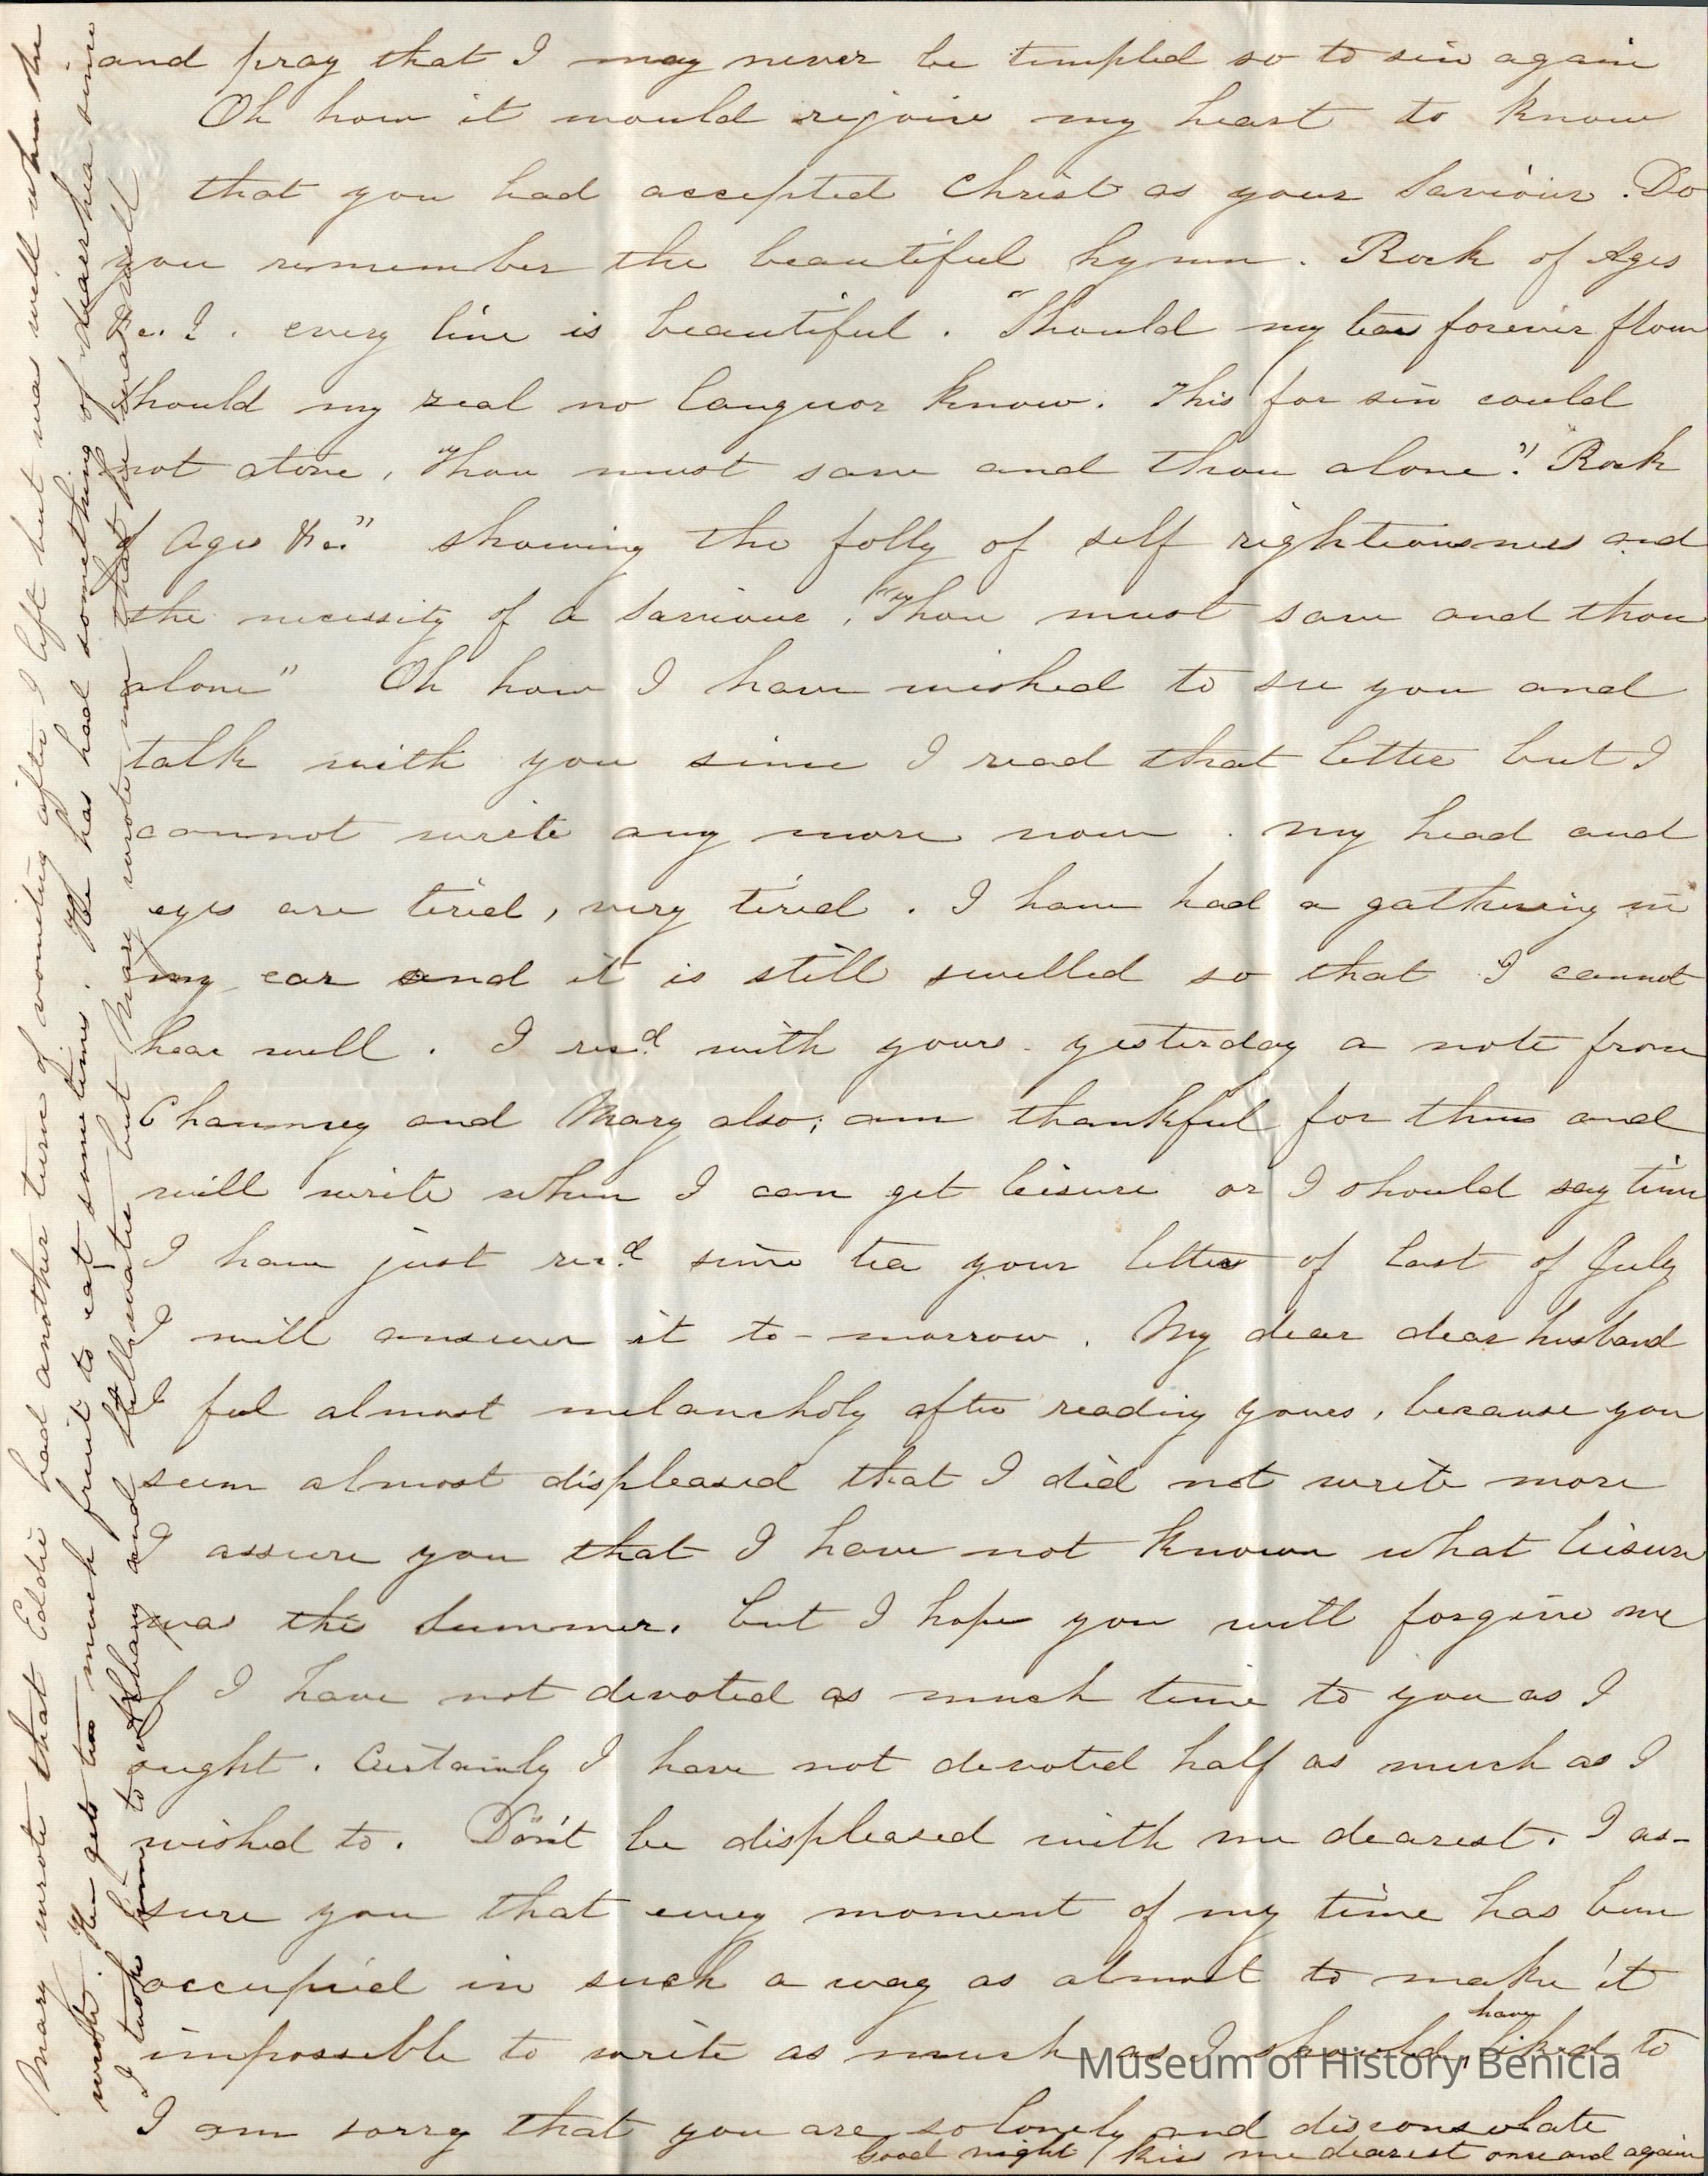 and pray that I may never be tempted so to sin again
Oh how it would rejoice my heart to know
that you had accepted Christ as your Saviour. Do
you remember the beautiful hymn. Rock of Ages
&c.? every line is beautiful. "Should my tears forever flow
Should my zeal no languor know. This for sin could
not atone, Thou must save and thou alone". "Rock
of Ages &c." showing the folly of self righteousness and
the necessity of a Saviour, "Thou must save and thou
alone" Oh how I have wished to see you and
talk with you since I read that letter but I
cannot write any more now. My head and
eyes are tired, very tired. I have had a gathering in
my ear and it is still swelled so that I cannot
hear well. I recd. with yours yesterday a note from
Chauncey and Mary also; am thankful for them and
will write when I can get leisure or I should say time
I have just recd. since tea your letter of last of July
I will answer it to-morrow. My dear dear husband
I feel almost melancholy after reading yours, because you
seem almost displeased that I did not write more
I assure you that I have not known what leisure
was this Summer. but I hope you will forgive me
if I have not devoted as much time to you as I
ought. Certainly I have not devoted half as much as I
wished to. Don't be displeased with me dearest. I as-
sure you that every moment of my time has been
occupied in such a way as almost to make it
impossible to write as much as I should have liked to
I am sorry that you are so lonely and disconsolate
Good night kiss me dearest once and again
Mary wrote that Eddie had another turn of vomiting after I left but was well when she
wrote. He gets too much fruit to eat sometimes. He has had something of diarrhea since
I took him to Albany and Stillwater but Mary wrote me that he was well
Museum of History Benicia